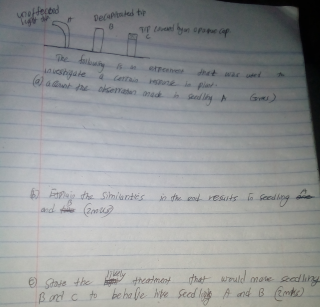 unaffected
light
Decapitated tip
B
TIP covered by an opaque cap
The following is an experiment that was used to
investigate a certain response in plant.
(a) account the observation made in seedling A (3mks)
(b) Explain the similarities in the end results of seedling
and (2mks)
(c) State the likely treatment that would make seedling
B and C to behave like seedling A and B (2mks)